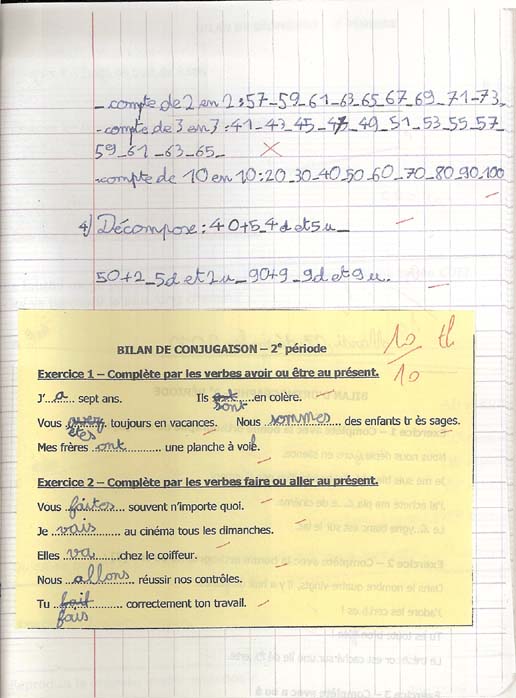 - compte de 2 en 2 : 57_59_61_63_65_67_69_71_73_
- compte de 3 en 3 : 41_43_45_47_49_51_53_55_57_
59_61_63_65_
- compte de 10 en 10 : 20_30_40_50_60_70_80_90_100
4) Décompose : 40+5_4d et 5u_
50+2_5d et 2u_90+9_9d et 9u.
10 tb
10
BILAN DE CONJUGAISON – 2e période
Exercice 1 – Complète par les verbes avoir ou être au présent.
J'..a..... sept ans. Ils sont en colère.
Vous avez êtes toujours en vacances. Nous sommes des enfants tr ès sages.
Mes frères ont une planche à voile.
Exercice 2 – Complète par les verbes faire ou aller au présent.
Vous faites souvent n'importe quoi.
Je vais au cinéma tous les dimanches.
Elles va chez le coiffeur.
Nous allons réussir nos contrôles.
Tu fait correctement ton travail.
fais